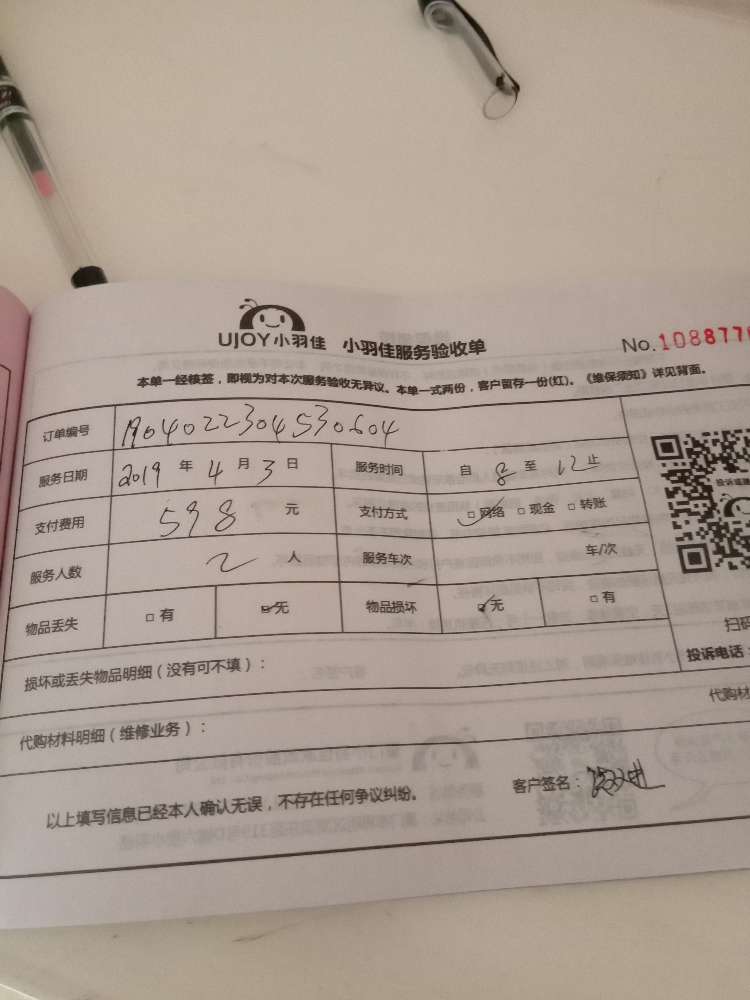 UJOY小羽佳 小羽佳服务验收单 No.108877
本单一经核签，即视为对本次服务验收无异议。本单一式两份，客户留存一份(红)。《维保须知》详见背面。
订单编号 1904022304530604
服务日期 2019 年 4 月 3 日 服务时间 自 8 至 12 止
支付费用 598 元 支付方式 ☑网络 □现金 □转账
服务人数 2 人 服务车次 车/次
物品丢失 □有 ☑无 物品损坏 ☑无 □有
损坏或丢失物品明细（没有可不填）：
扫码
投诉电话：
代购材料明细（维修业务）：
代购材
以上填写信息已经本人确认无误，不存在任何争议纠纷。 客户签名：